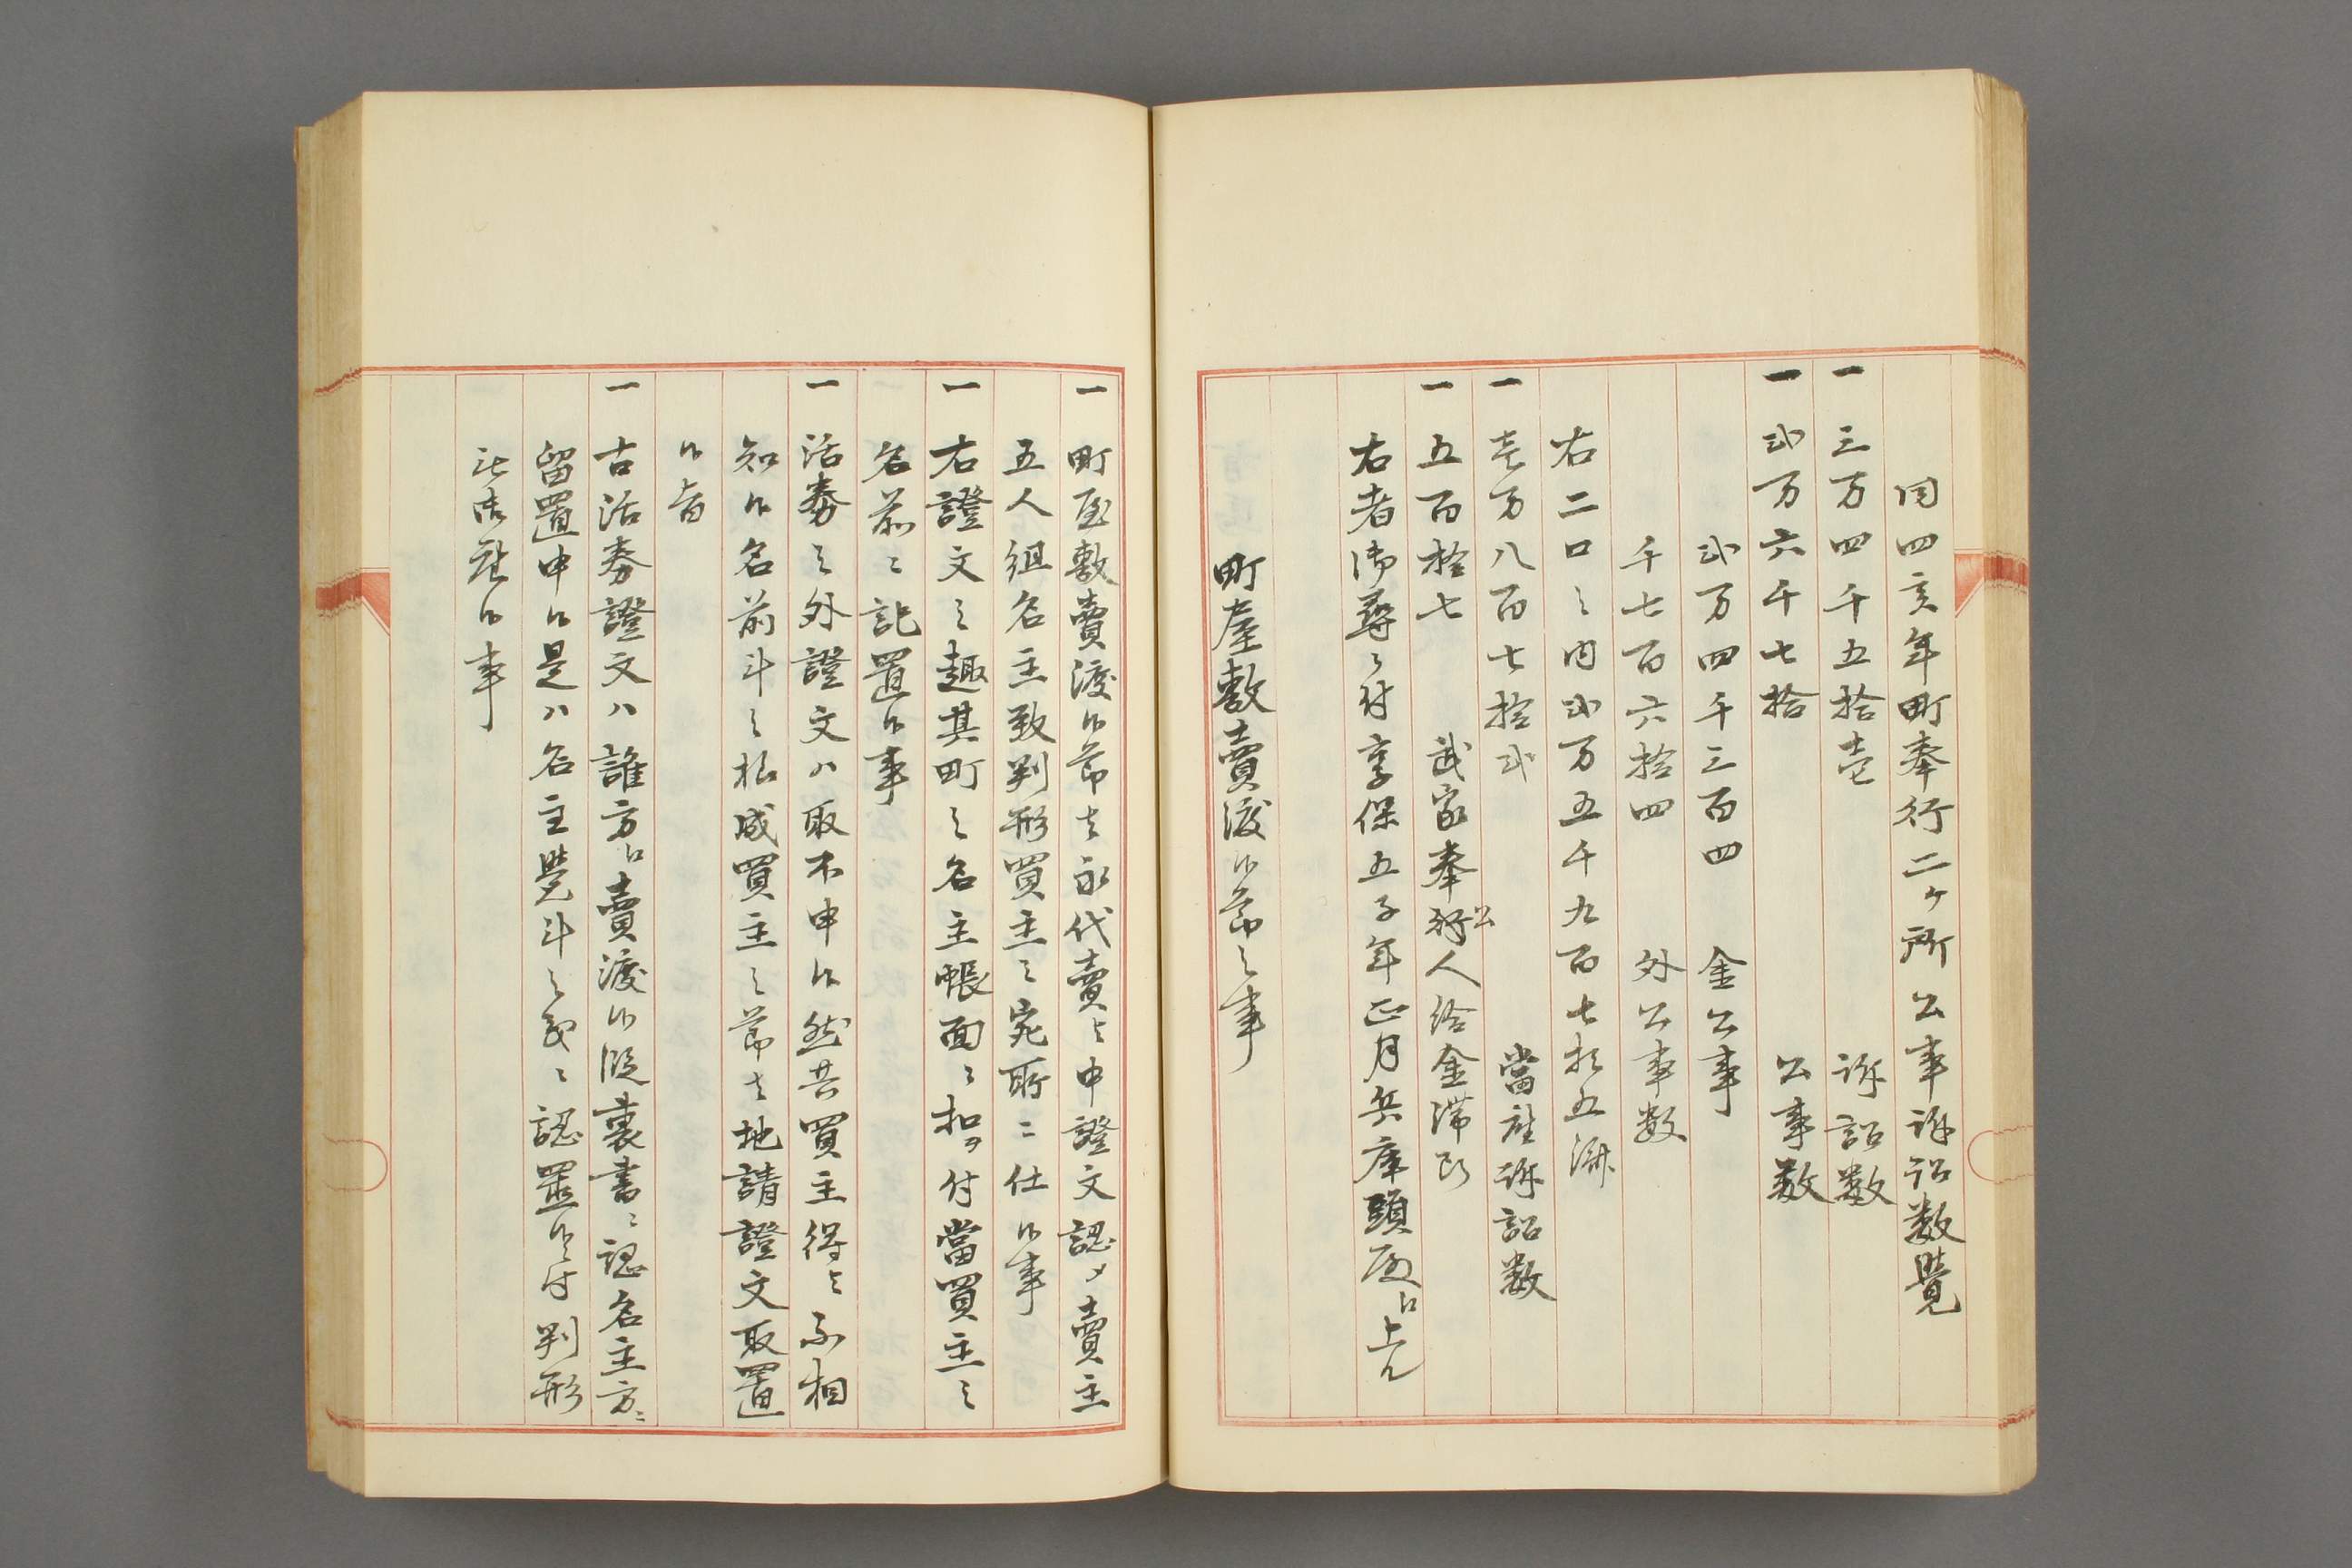 同四亥年町奉行二ケ所公事訴訟数覚
一 三万四千五拾壱 訴訟数
一 弐万六千七拾 公事数
弐万四千三百四 金公事
千七百六拾四 外公事数
右二口之内弐万五千九百七拾五済
一 壱万八百七拾弐 當座訴訟数
一 五百拾七 武家奉公人給金滞
右者御尋ニ付享保五子年正月兵庫頭殿江上ル
町屋敷賣渡候節之事
一 町屋敷賣渡候節者永代賣与申證文認メ賣主
五人組名主致判形買主之宛所ニ仕候事
一 右證文之趣其町之名主帳面ニ扣ヲ付當買主之
名前ニ記置候事
一 沽券之外證文ハ取不申候然共買主得与不相
知候名前斗之株成買主之節者地請證文取置
候旨
一 古沽券證文ハ誰方江賣渡候段裏書ニ認名主方ニ
留置申候是ハ名主覚斗之義ニ認置候ニ付判形
ハ
候事